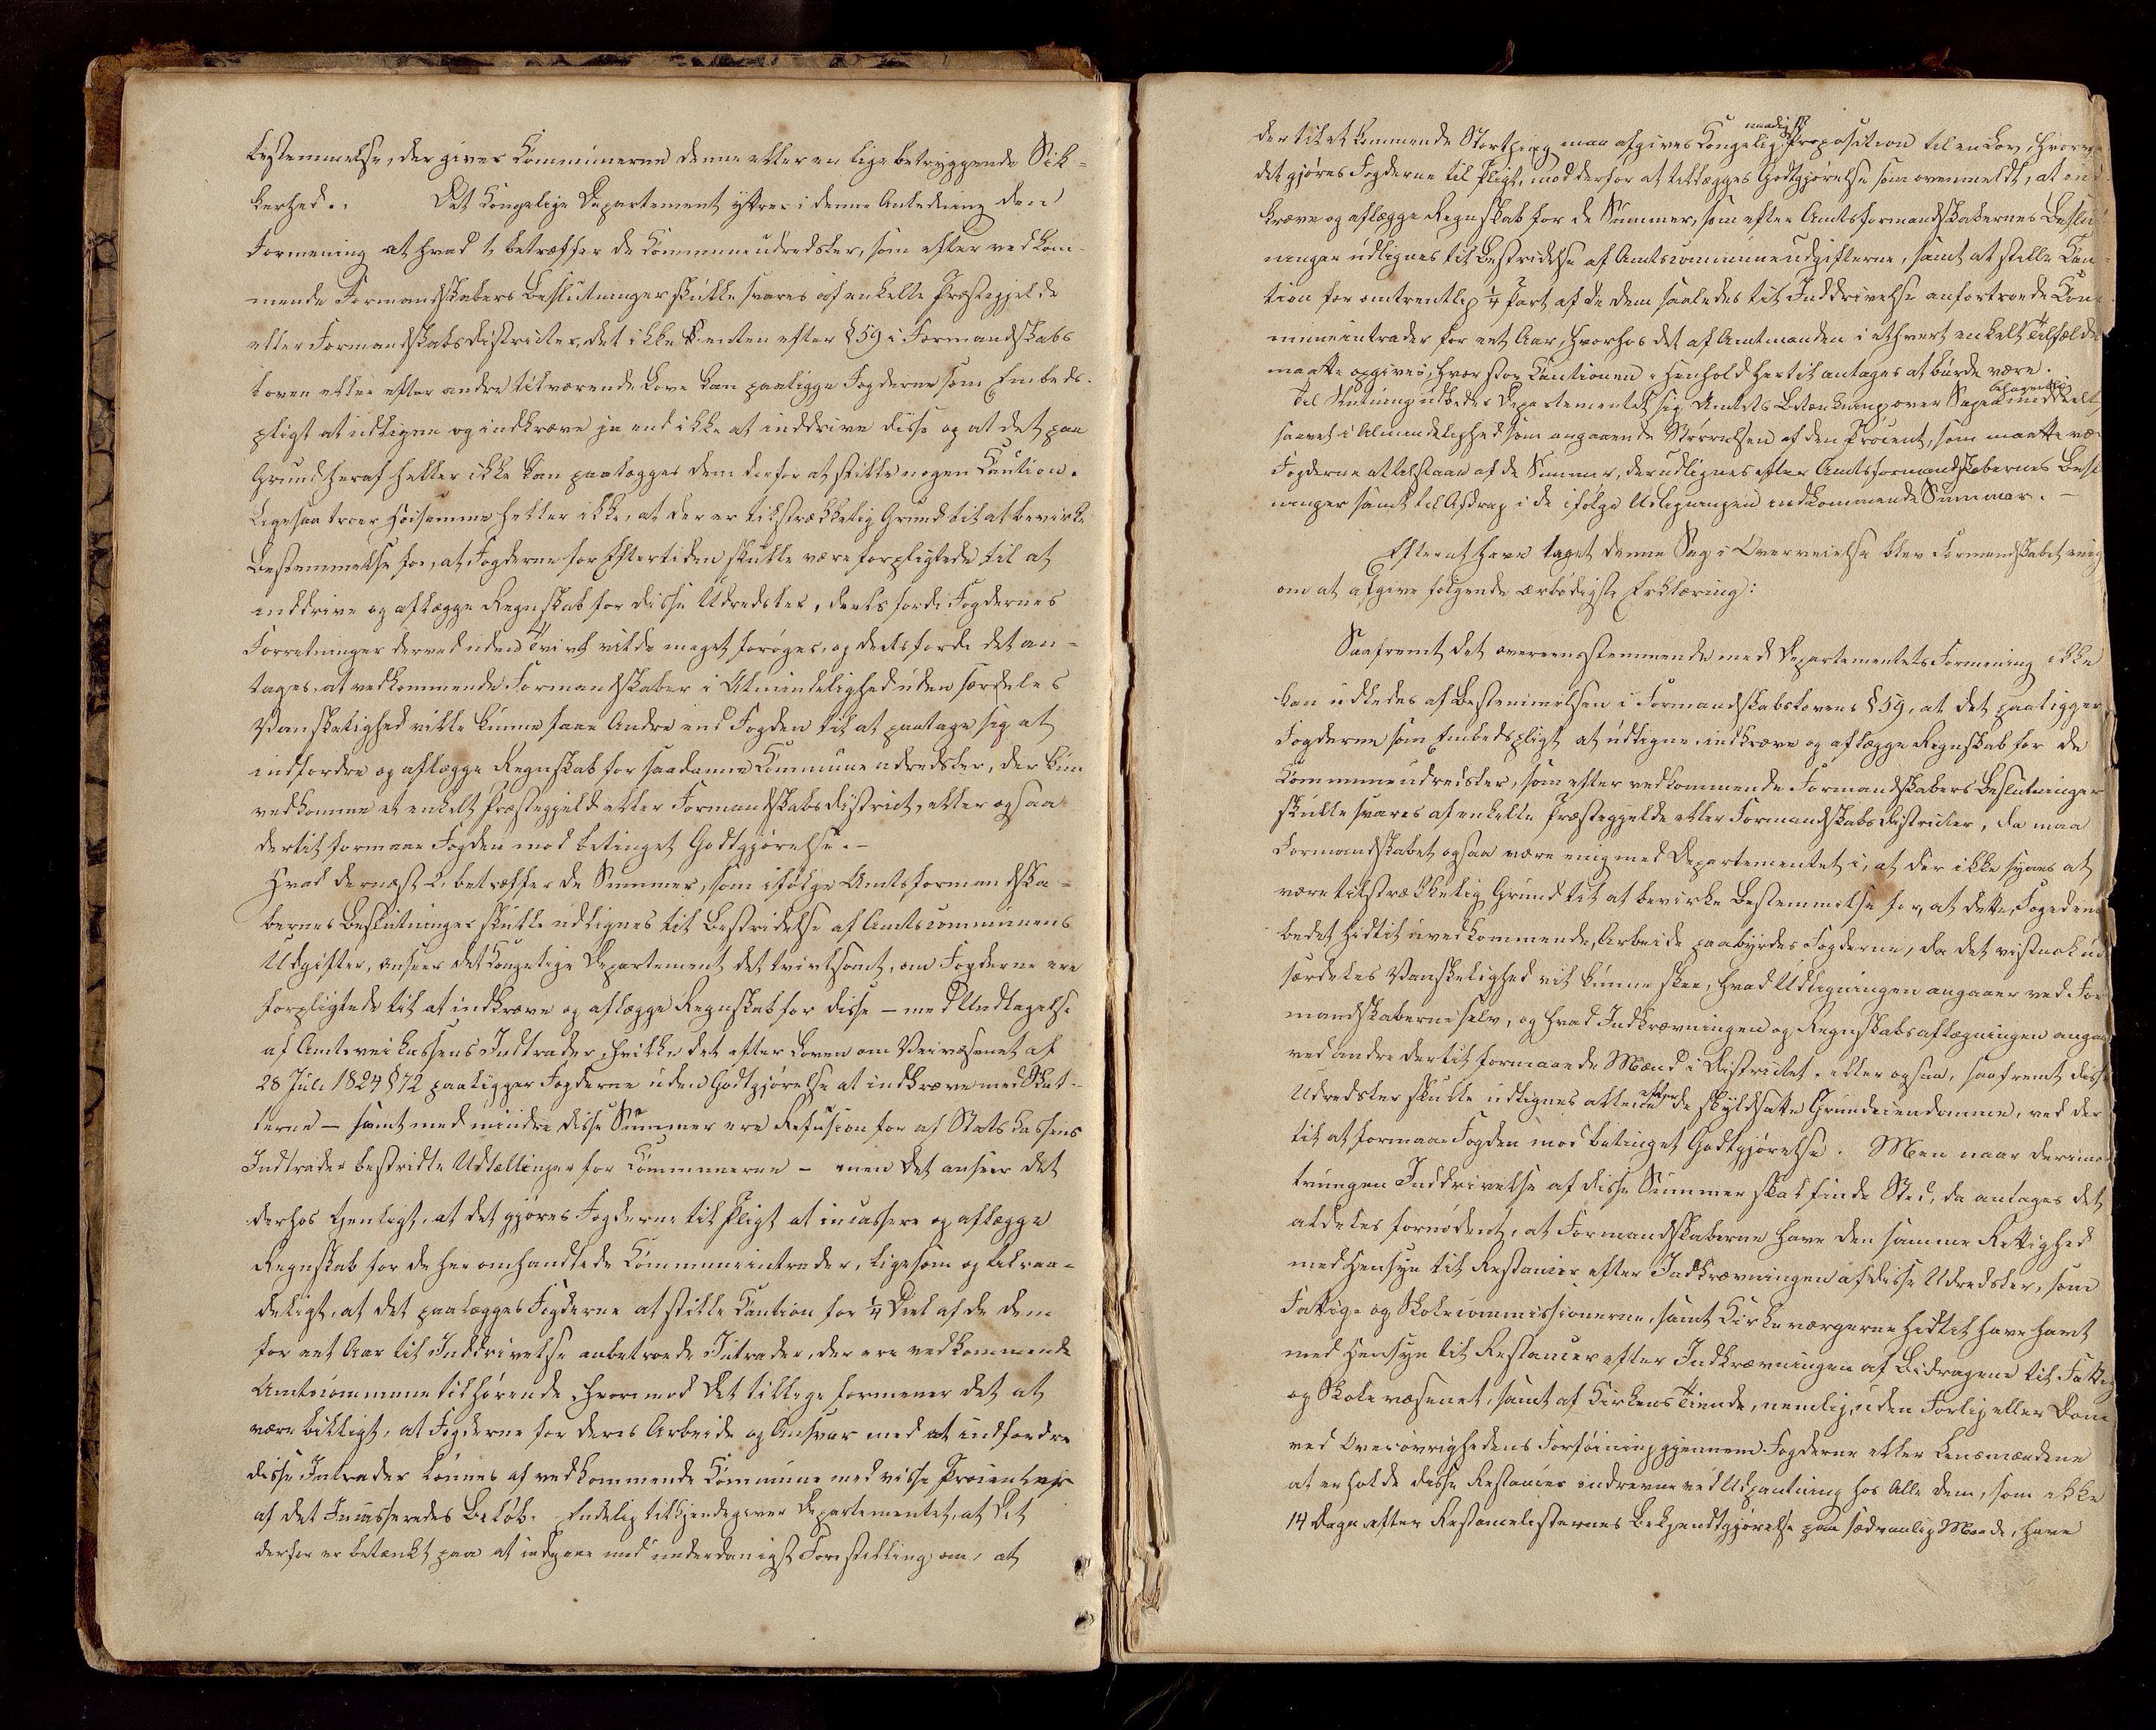 bestemmelse, der giver Communerne denne eller en lige betryggende Sik-
kerhed. Det Kongelige Departement yttrer i denne Anledning den
Formening at hvad 1, betræffer de Communeudredsler, som efter vedkom-
mende Formandskabers Beslutninger skulle svares af enkelte Præstegjelde
eller Formandskabsdistricter, det ikke enten efter § 59 i Formandskabs
loven eller efter andre tilværende Love kan paaligge Fogderne som Embeds-
pligt at udligne og indkræve ja end ikke at inddrive disse og at det paa
Grund heraf heller ikke kan paalægges dem derfor at stille nogen Caution.
Ligesaa troer Høisamme heller ikke, at der er tilstrækkelig Grund til at bevirke
Bestemmelse for, at Fogderne for Eftertiden skulle være forpligtede til at
inddrive og aflægge Regnskab for disse Udredsler, deels fordi Fogdernes
Forretninger derved uden Tvivl vilde meget forøges, og deels fordi det an-
tages, at vedkommende Formandskaber i Almindelighed uden særdeles
Vanskelighed ville kunne faae Andre end Fogden til at paatage sig at
indfordre og aflægge Regnskab for saadanne Communeudredsler, der kun
vedkomme et enkelt Præstegjeld eller Formandskabsdistrict, eller ogsaa
dertil formaae Fogden mod betinget Godtgjørelse. -
Hvad dernæst 2, betræffer de Summer, som ifølge Amtsformandska-
bernes Beslutninger skulle udlignes til Bestridelse af Amtscommunens
Udgifter, anseer det Kongelige Departement det tvivlsomt, om Fogderne ere
forpligtede til at indkræve og aflægge Regnskab for disse - med Undtagelse
af Amtsveikassens Indtrader, hvilke det efter Loven om Veivæsenet af
28 Juli 1824 § 72 paaligger Fogderne uden Godtgjørelse at indkræve med Skat-
terne - samt med mindre disse Summer ere Refusion for af Statskassens
Indtrader bestridte Udtællinger for Communerne - men det anseer det
derhos tjenligt, at det gjøres Fogderne til Pligt at incassere og aflægge
Regnskab for de her omhandlede Communeintrader, ligesom og tilraa-
deligt, at det paalægges Fogderne at stille Caution for 1/4 Deel af de dem
for eet Aar til Inddrivelse anbetroede Intrader, der ere vedkommende
Amtscommune tilhørende, hvorimod det tillige formener det at
være billigt, at Fogderne for deres Arbeide og Ansvar med at indfordre
disse Intrader lønnes af vedkommende Commune med visse Procenter
af det Incasseredes Beløb. Endelig tilkjendegiver Departementet, at Det
derfor er betænkt paa at indgaae med underdanigst Forestilling om, at
der til et kommende Storthing maa afgives Kongelig naadigst Proposition til en Lov, hvorved
det gjøres Fogderne til Pligt, mod derfor at tillægges Godtgjørelse som ovenmeldt, at ind
kræve og aflægge Regnskab for de Summer, som efter Amtsformandskabernes Beslut
ninger udlignes til Bestridelse af Amtscommuneudgifterne, samt at stille Cau-
tion for omtrentlig 1/4 Part af de dem saaledes til Inddrivelse anfortroede Com-
muneintrader for eet Aar, hvorhos det af Amtmanden i ethvert enkelt Tilfælde
maatte opgives, hvor stor Cautionen i Henhold hertil antages at burde være.
Til Slutning udbeder Departementet sig Amtets Betænkning over Sagen behageligst meddeelt,
saavel i Almindelighed som angaaende Størrelsen af den Procent, som maatte være
Fogderne at tilstaae af de Summer, der udlignes efter Amtsformandskabernes Beslut
ninger samt til Afdrag i de ifølge Udligningen indkommende Summer. -
Efter at have taget denne Sag i Overveielse blev Formandskabet enig
om at afgive følgende ærbødigste Erklæring:
Saafremt det overeensstemmende med Departementets Formening ikke
kan udledes af Bestemmelsen i Formandskabslovens § 59, at det paaligger
Fogderne som Embedspligt at udligne, indkræve og aflægge Regnskab for de
Communeudredsler, som efter vedkommende Formandskabers Beslutninger
skulle svares af enkelte Præstegjelde eller Formandskabsdistricter, da maa
Formandskabet ogsaa være enig med Departementet i, at der ikke synes at
være tilstrækkelig Grund til at bevirke Bestemmelse for, at dette, Fogedem
bedet hidtil uvedkommende, Arbeide paabyrdes Fogderne, da det vistnok uden
særdeles Vanskelighed vil kunne skee, hvad Udligningen angaaer ved For
mandskaberne selv, og hvad Indkrævningen og Regnskabsaflægningen angaaer
ved andre dertil formaaede Mænd i Districtet, eller ogsaa, saafremt disse
Udredsler skulle udlignes allene efter de skyldsatte Grundeiendomme, ved der
til at formaae Fogden mod betinget Godtgjørelse. Men naar derimod
tvungen Inddrivelse af disse Summer skal finde Sted, da antages det
aldeles fornødent, at Formandskaberne have den samme Rettighed
med Hensyn til Restancer efter Indkrævningen af disse Udredsler, som
Fattig- og Skolecommissionerne, samt Kirkeværgerne hidtil have havt
med Hensyn til Restancer efter Indkrævningen af Bidragene til Fattig
og Skolevæsenet, samt af Kirkens Tiende, nemlig, uden Forlig eller Dom
ved Overøvrighedens Forføining gjennem Fogderne eller Lensmændene
at erholde disse Restancer inddrevne ved Udpantning hos Alle dem, som ikke
14 Dage efter Restancelisternes Bekjendtgjørelse paa sædvanlig Maade, have